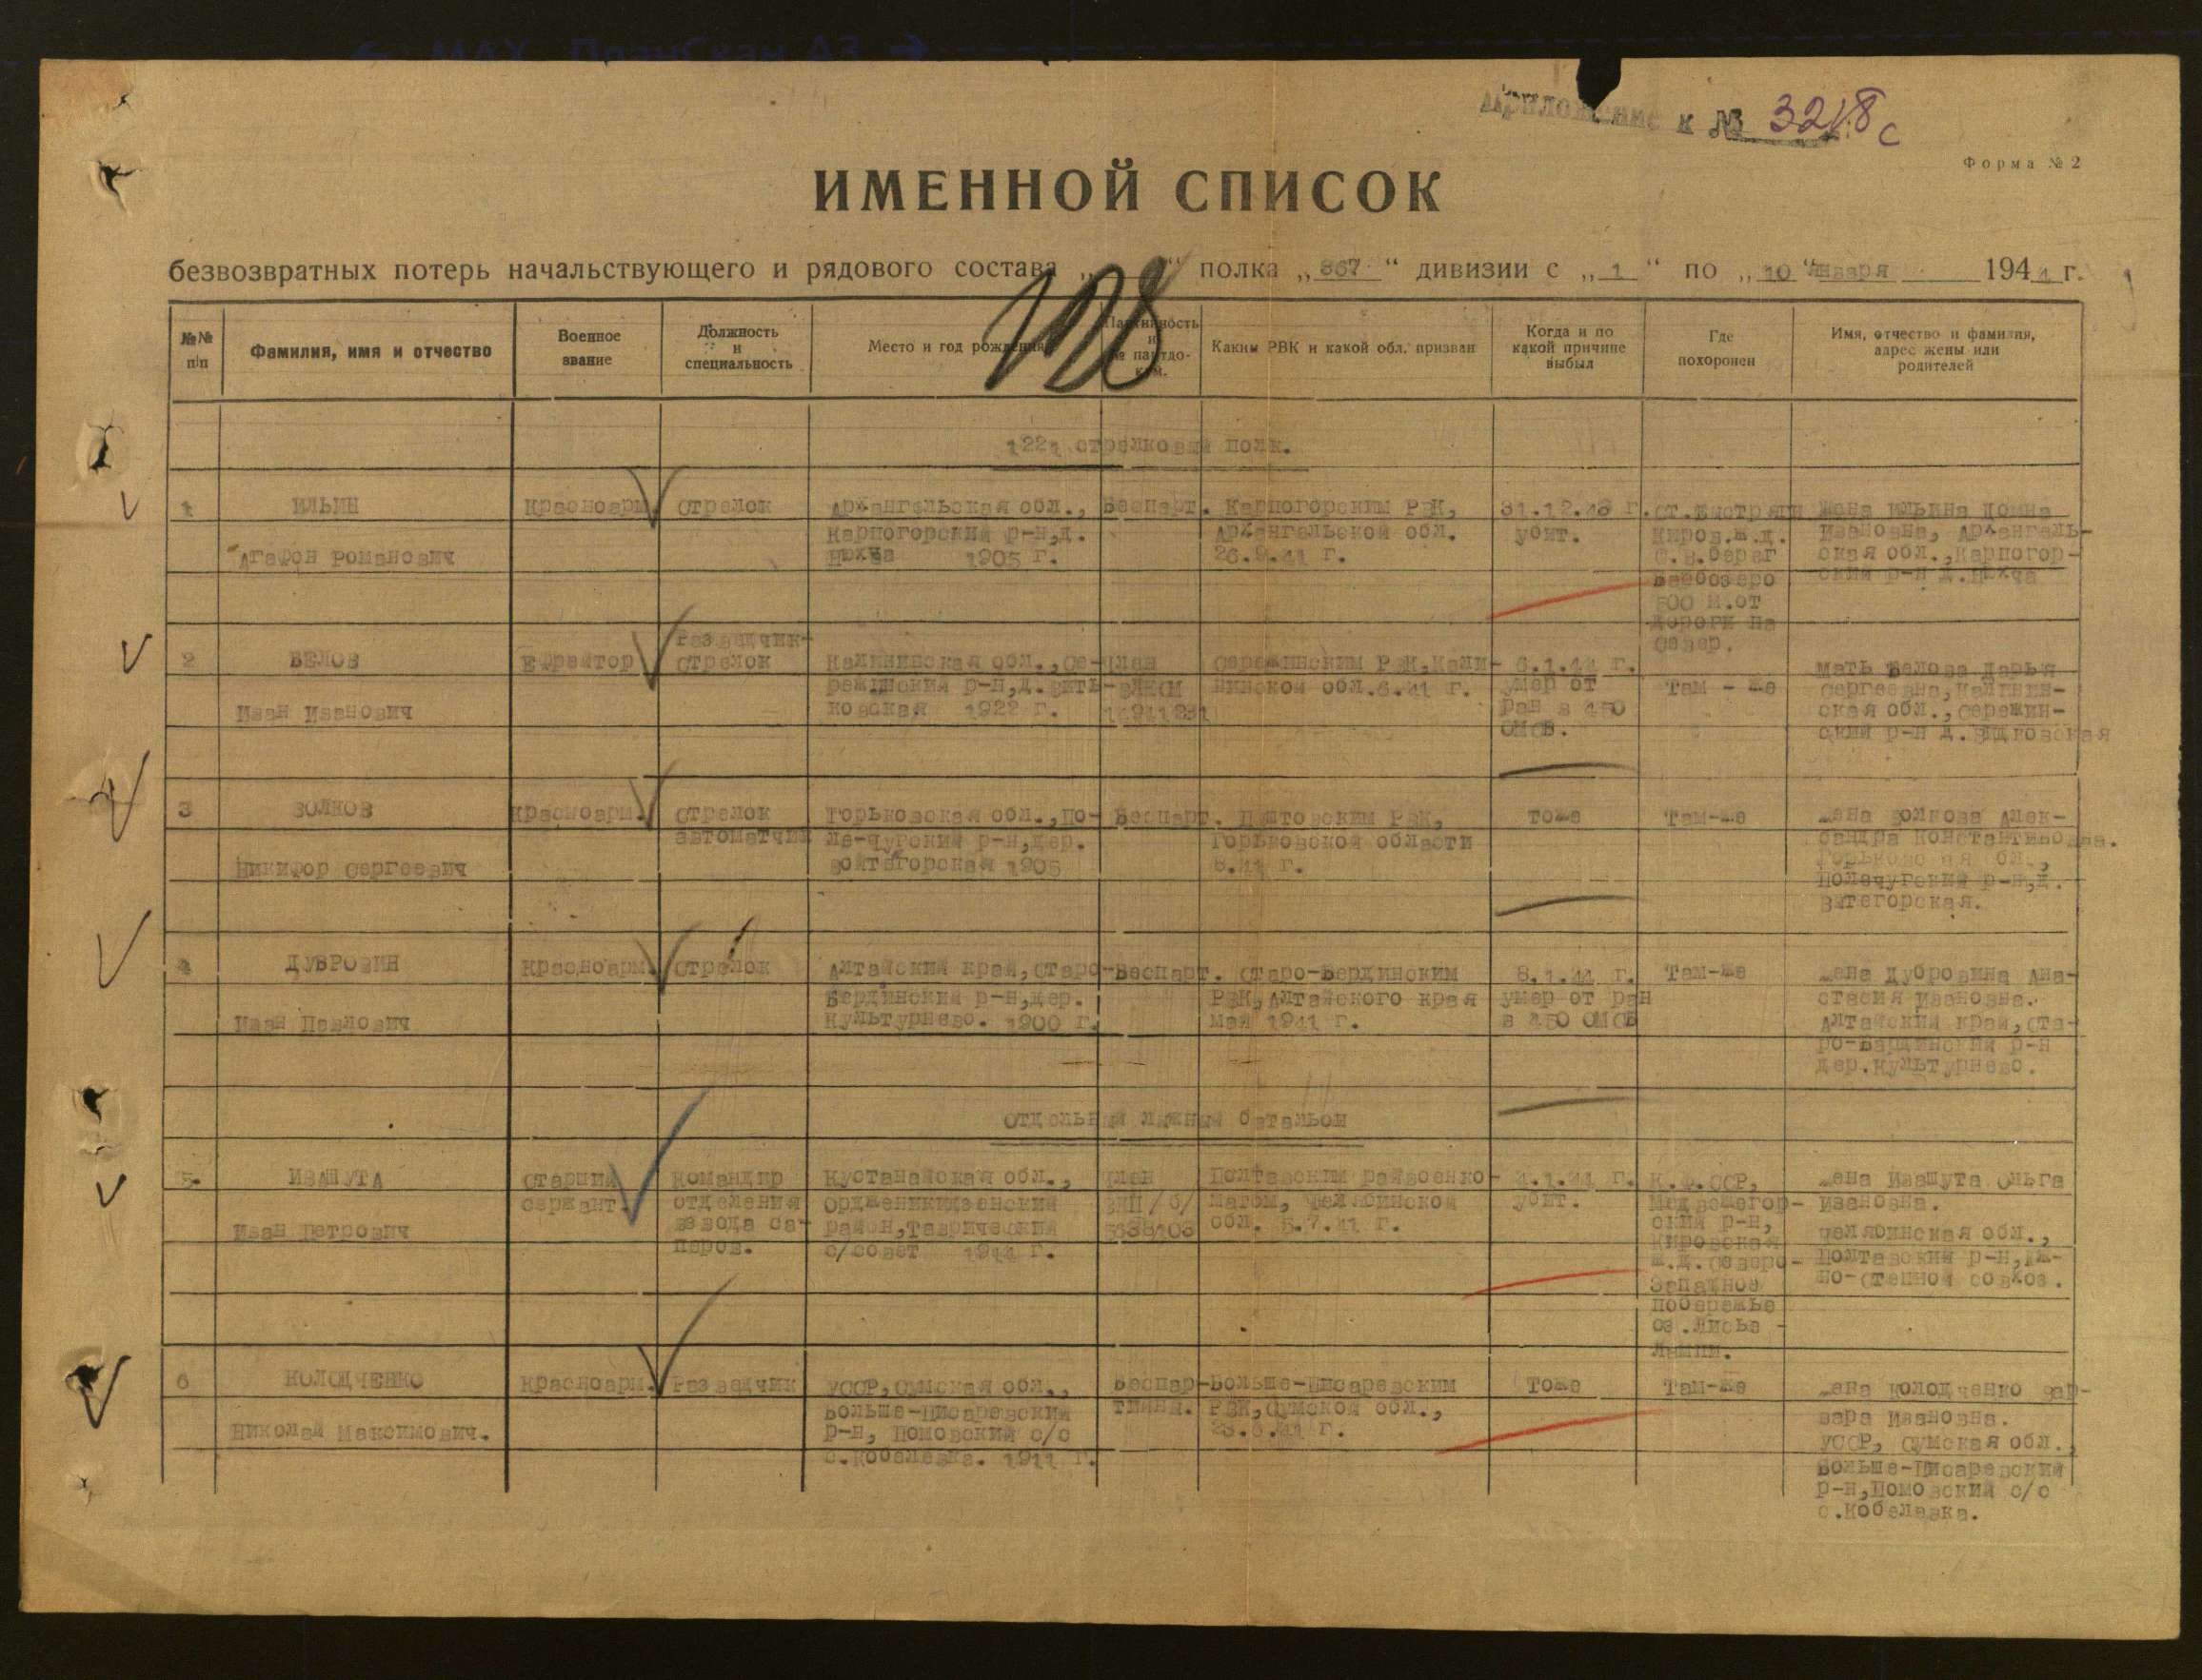 Приложение к № 3218с
Форма № 2
ИМЕННОЙ СПИСОК
безвозвратных потерь начальствующего и рядового состава „ “ полка „867“ дивизии с „1“ по „10“ января 1944 г.
128
№№ п/п
Фамилия, имя и отчество
Военное звание
Должность и специальность
Место и год рождения
Партийность и № партдокум.
Каким РВК и какой обл. призван
Когда и по какой причине выбыл
Где похоронен
Имя, отчество и фамилия, адрес жены или родителей
1221 стрелковый полк.
1
ИЛЬИН
Агафон Романович
Красноарм.
Стрелок
Архангельская обл.,
Карпогорский р-н,д.
Нюхча 1905 г.
Беспарт.
Карпогорским РВК,
Архангельской обл.
26.9.41 г.
31.12.43 г.
убит.
Киров.ж.д.
С.В.берег
500 м.от
дороги на
север.
Жена Ильина Домна
Ивановна, Архангель-
ская обл.,Карпогор-
ский р-н д.Нюхча
2
БЕЛОВ
Иван Иванович
Ефрейтор
Разведчик-
стрелок
Калининская обл.,Се-
режинский р-н,д.
ковская 1922 г.
Член
ВЛКСМ
Сережинским РВК,Кали-
нинской обл.6.41 г.
6.1.44 г.
умер от
ран в 450
ОМСБ.
Там - же
Мать Белова Дарья
Сергеевна,Калинин-
ская обл.,Сережин-
ский р-н д.
3
ВОЛКОВ
Никифор Сергеевич
Красноарм.
Стрелок
автоматчик
Горьковская обл.,По-
ле-Чугский р-н,дер.
1905
Беспарт.
РВК,
Горьковской области
8.41 г.
тоже
Там-же
Жена Волкова Алек-
сандра Константиновна.
обл.,
р-н,д.
Витегорская.
4
ДУБРОВИН
Иван Павлович
Красноарм.
Стрелок
Алтайский край,Старо-
Бердинский р-н,дер.
Культурнево. 1900 г.
Беспарт.
Старо-Бердинским
РВК,Алтайского края
май 1941 г.
8.1.44 г.
умер от ран
в 450 ОМСБ
Там-же
Жена Дубровина Ана-
стасия Ивановна.
Алтайский край,Ста-
ро-Бардинский р-н
дер.Культурнево.
Отдельный лыжный батальон
5.
ИВАШУТА
Иван Петрович
Старший
сержант.
Командир
отделения
взвода са-
перов.
Кустанайская обл.,
Орджоникидзенский
район,Таврический
с/совет 1914 г.
Член
ВКП/б/
Полтавским райвоенко-
матом, Челябинской
обл. 5.7.41 г.
4.1.44 г.
убит.
К.Ф.ССР,
Медвежегор-
ский р-н,
Кировская
ж.д. Северо-
Западное
побережье
оз.Лисье -
Лампи.
Жена Ивашута Ольга
Ивановна.
Челябинская обл.,
Полтавский р-н,Юж-
но-Степной совхоз.
6
КОЛОДЧЕНКО
Николай Максимович.
Красноарм.
Разведчик
УССР,Сумская обл.,
Больше-Писаревский
р-н, Помовский с/с
с.Кобелевка. 1911 г.
Беспар-
тийн.
Больше-Писаревским
РВК,Сумской обл.,
23.6.41 г.
Тоже
Там-же
Жена Колодченко Вар-
вара Ивановна.
УССР, Сумская обл.,
Больше-Писаревский
р-н,Помовский с/с
с.Кобелевка.